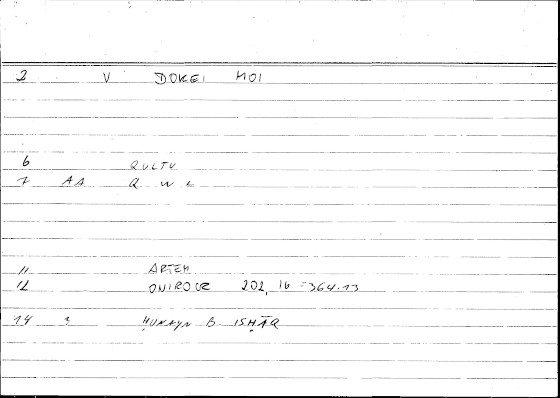 2 V DOKEI MOI
6 QULTU
7 AA Q W L
11 ARTEM
12 ONIROCR 202, 16 = 364.13
14 3 ḤUNAYN B ISḤĀQ